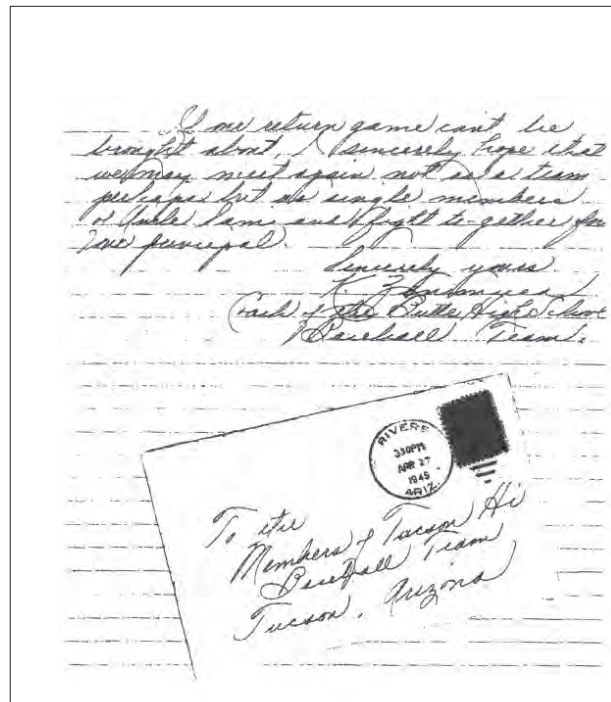 If our return game can't be
brought about, I sincerely hope that
we may meet again not as a team
perhaps but as single members
of Uncle Sam and fight to-gether for
one principal.
Sincerely yours
K Zenimura
Coach of the Butte High School
Baseball Team.
RIVERS
330PM
APR 27
1945
ARIZ.
To the
Members of Tucson Hi
Baseball Team
Tucson, Arizona